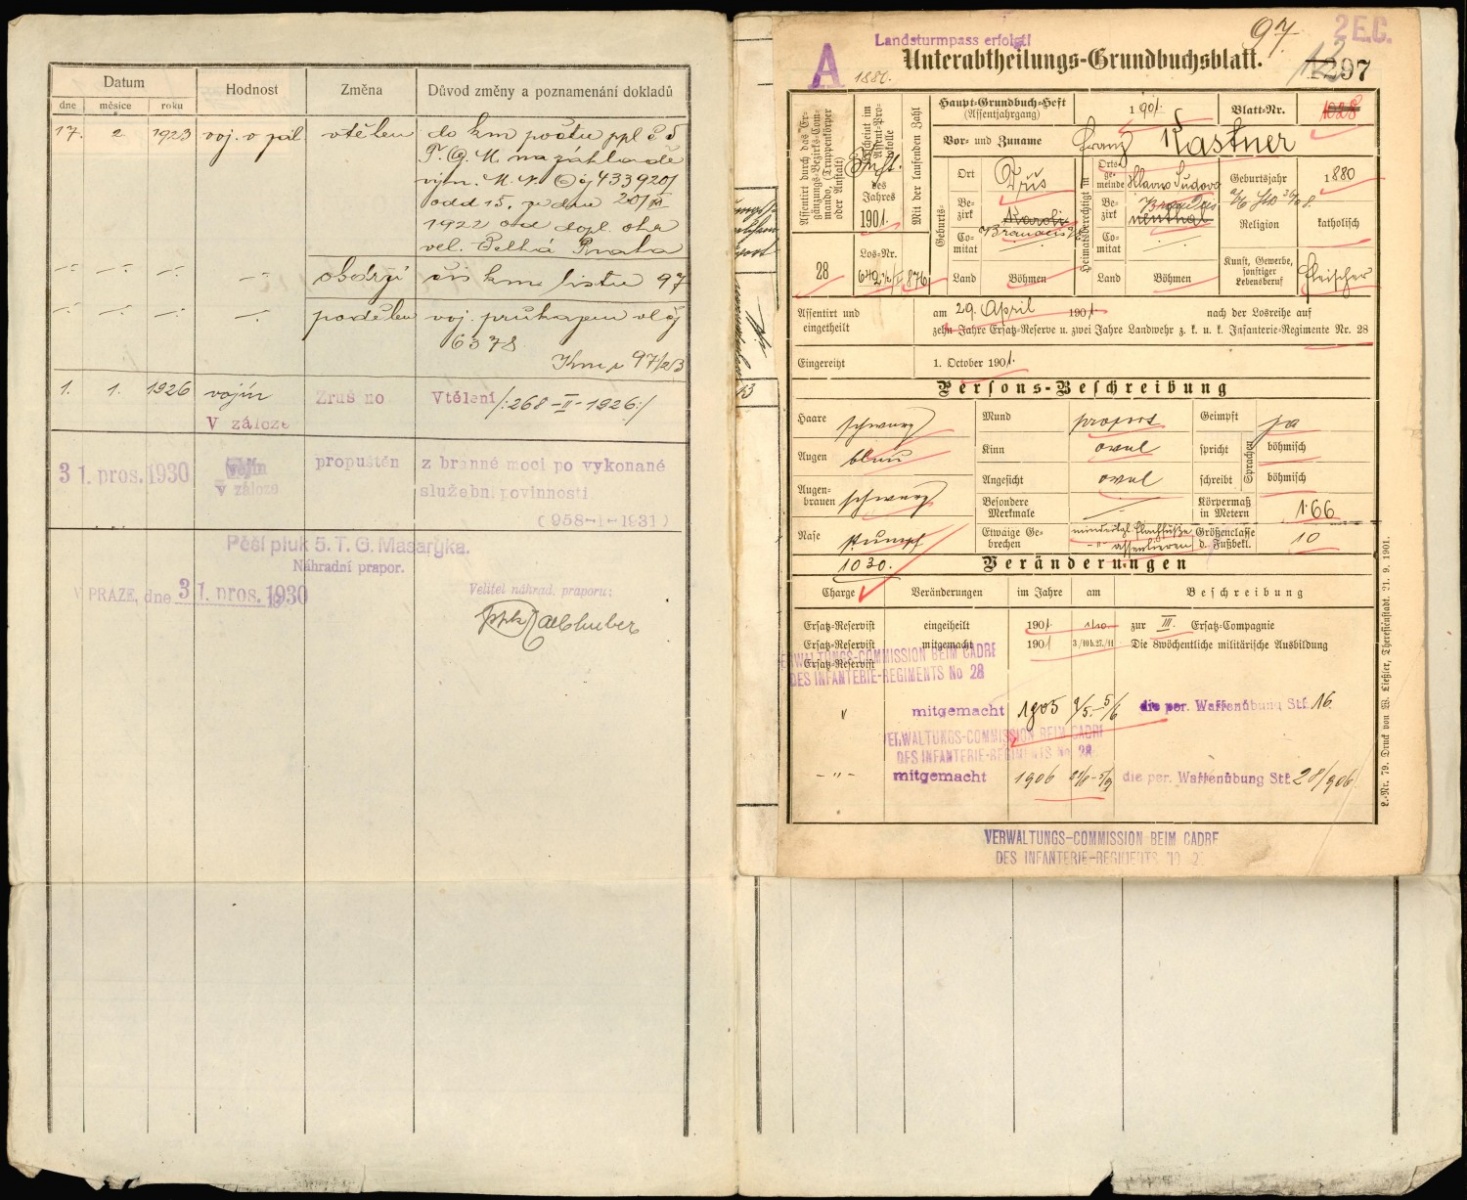 Datum
Hodnost
Změna
Důvod změny a poznamenání dokladů
dne
měsíce
roku
17. 2. 1923 voj. v zál vtělen do km počtu ppl č 5
T. G. M. na základě
výn. M. N. O čj 433920/
odd 15. ze dne 20/XI
1922 od dopl. okr
vel. Praha
obdržel čís km listu 97
podělen voj. průkazem vl čj
6378
Kmp 97/23
1. 1. 1926 vojín Zrušeno Vtělení /:268-II-1926:/
V záloze
31. pros. 1930 vojín propuštěn z branné moci po vykonané
v záloze služební povinnosti
(958-I-1931)
Pěší pluk 5. T. G. Masaryka.
Náhradní prapor.
V PRAZE, dne 31. pros. 1930
Velitel náhrad. praporu:
97.
2 E.C.
Landsturmpass erfolgt!
A
1880.
Unterabtheilungs-Grundbuchsblatt.
1297
Assentirt durch das Ergänzungs-Bezirks-Commando, (Truppenkörper oder Anstalt)
28
Erscheint im Assent-Protokolle
des Jahres
1901.
Mit der laufenden Zahl
Los-Nr.
Haupt-Grundbuch-Heft
(Assentjahrgang)
1901.
Blatt-Nr.
1028
Vor- und Zuname Franz Kastner
Geburts-
Ort
Bezirk Karoli
Brandeis
Comitat
Land Böhmen
Heimatsberechtigt in
Ortsgemeinde
Bezirk
Brandeis
Comitat
Land Böhmen
Geburtsjahr 1880
Religion katholisch
Kunst, Gewerbe, sonstiger Lebensberuf Fleischer
Assentirt und eingetheilt
am 29. April 1901 nach der Losreihe auf
zehn Jahre Ersatz-Reserve u. zwei Jahre Landwehr z. k. u. k. Infanterie-Regimente Nr. 28
Eingereiht 1. October 1901.
Persons-Beschreibung
Haare schwarz
Mund proport
Geimpft ja
Augen blau
Kinn oval
Sprachen
spricht böhmisch
Augenbrauen schwarz
Angesicht oval
schreibt böhmisch
Besondere Merkmale
Körpermaß in Metern 1·66
Nase stumpf
Etwaige Gebrechen
Größenclasse d. Fußbekl. 10
1030.
Veränderungen
Charge Veränderungen im Jahre am Beschreibung
Ersatz-Reservist eingetheilt 1901 1/10 zur III. Ersatz-Compagnie
Ersatz-Reservist mitgemacht 1901 3/10 b. 27./11 Die 8wöchentliche militärische Ausbildung
Ersatz-Reservist
VERWALTUNGS-COMMISSION BEIM CADRE
DES INFANTERIE-REGIMENTS No 28
" mitgemacht 1905 9/5.-5/6 die per. Waffenübung Stf. 16.
VERWALTUNGS-COMMISSION BEIM CADRE
DES INFANTERIE-REGIMENTS No 28
-"- mitgemacht 1906 die per. Waffenübung Stf. 28/906
VERWALTUNGS-COMMISSION BEIM CADRE
DES INFANTERIE-REGIMENTS No 28
L.-Nr. 79. Druck von W. Ließler, Theresienstadt. 21. 9. 1901.